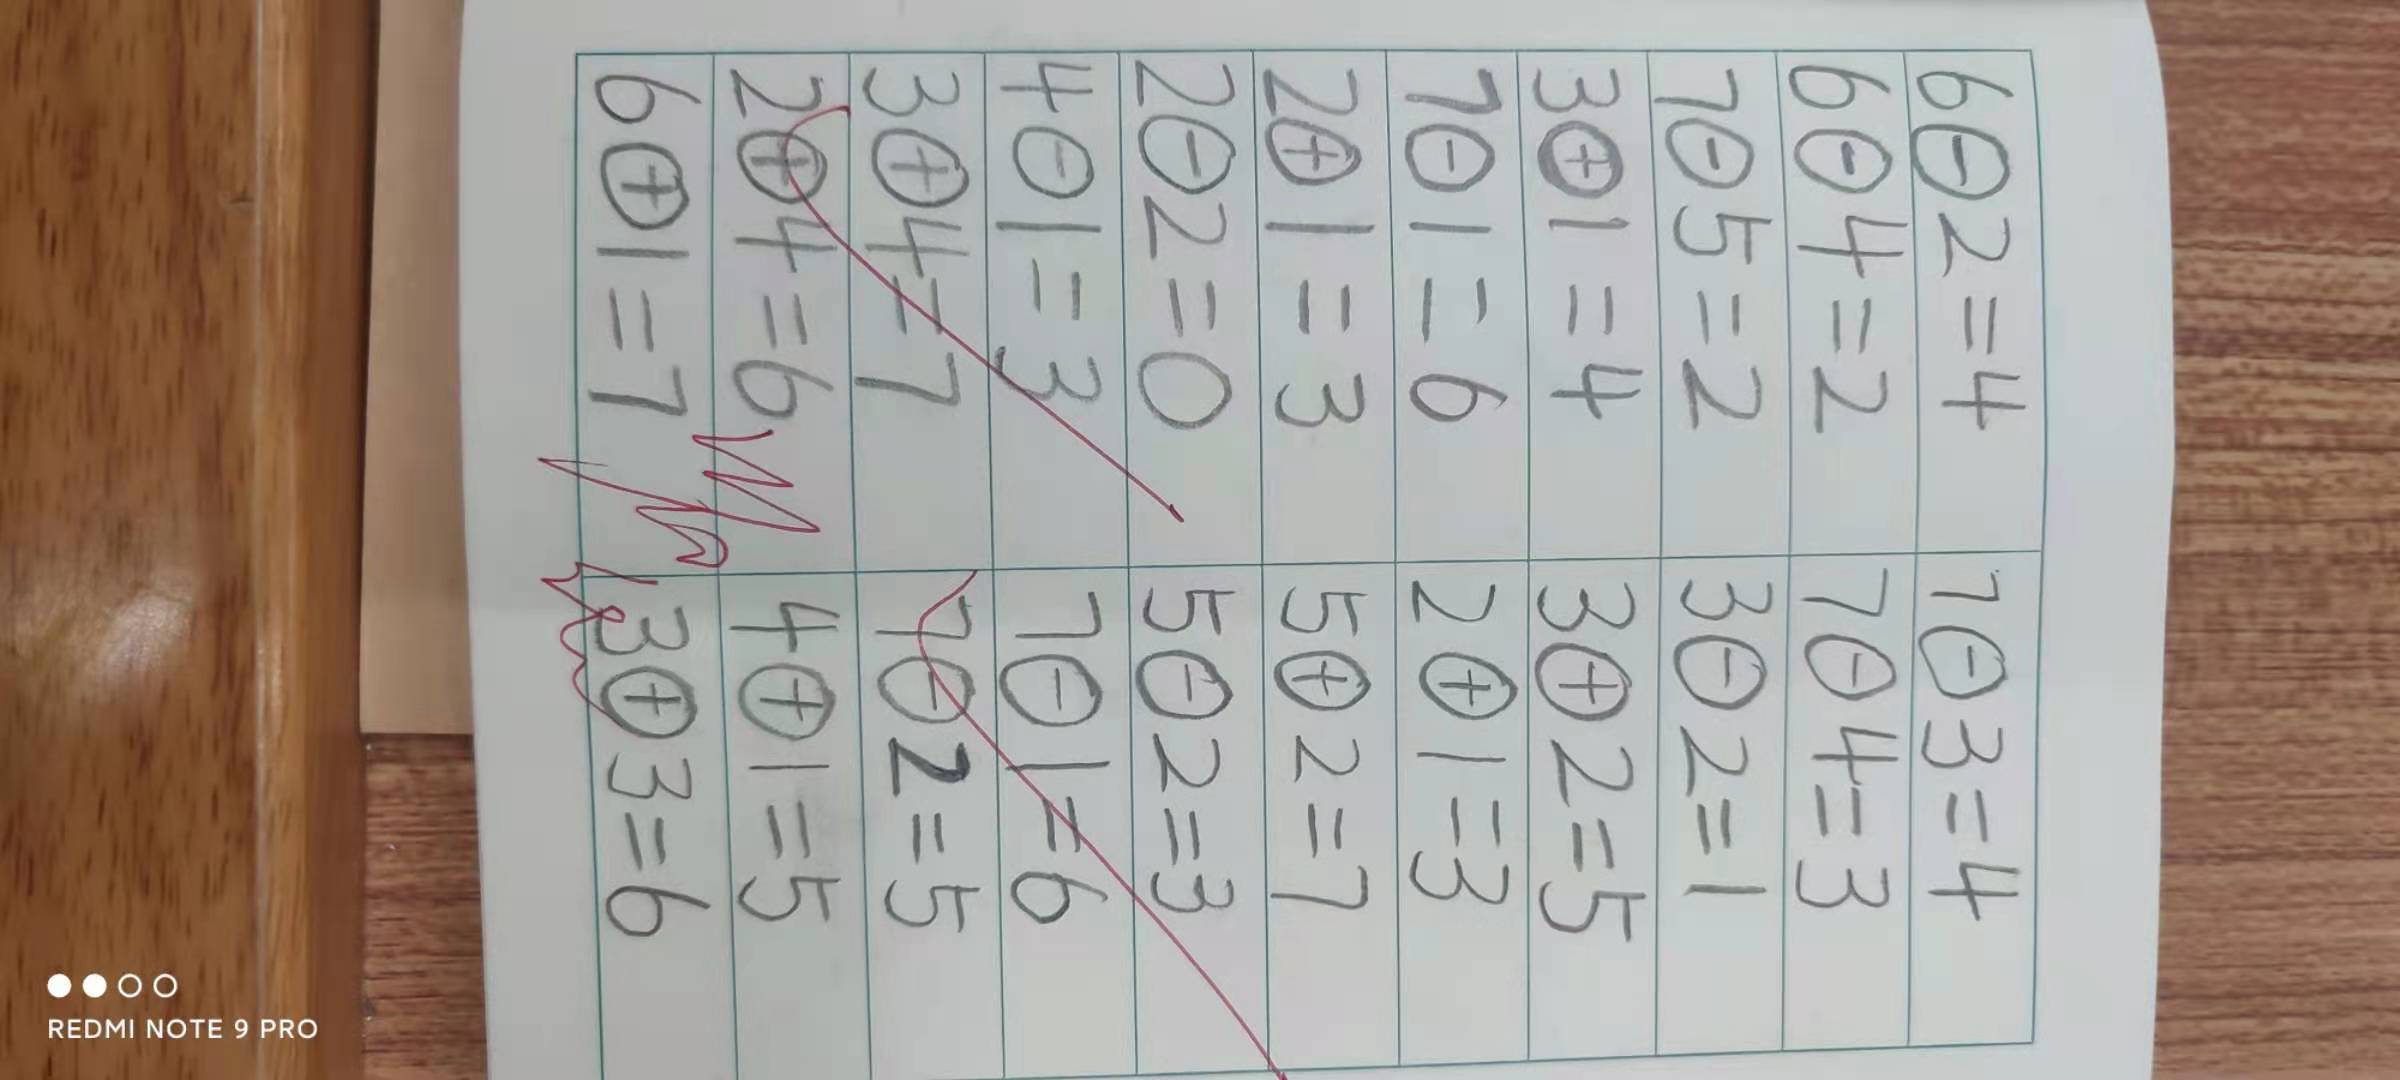 6⊖2=4 7⊖3=4
6⊖4=2 7⊖4=3
7⊖5=2 3⊖2=1
3⊕1=4 3⊕2=5
7⊖1=6 2⊕1=3
2⊕1=3 5⊕2=7
2⊖2=0 5⊖2=3
4⊖1=3 7⊖1=6
3⊕4=7 7⊖2=5
2⊕4=6 4⊕1=5
6⊕1=7 3⊕3=6
REDMI NOTE 9 PRO